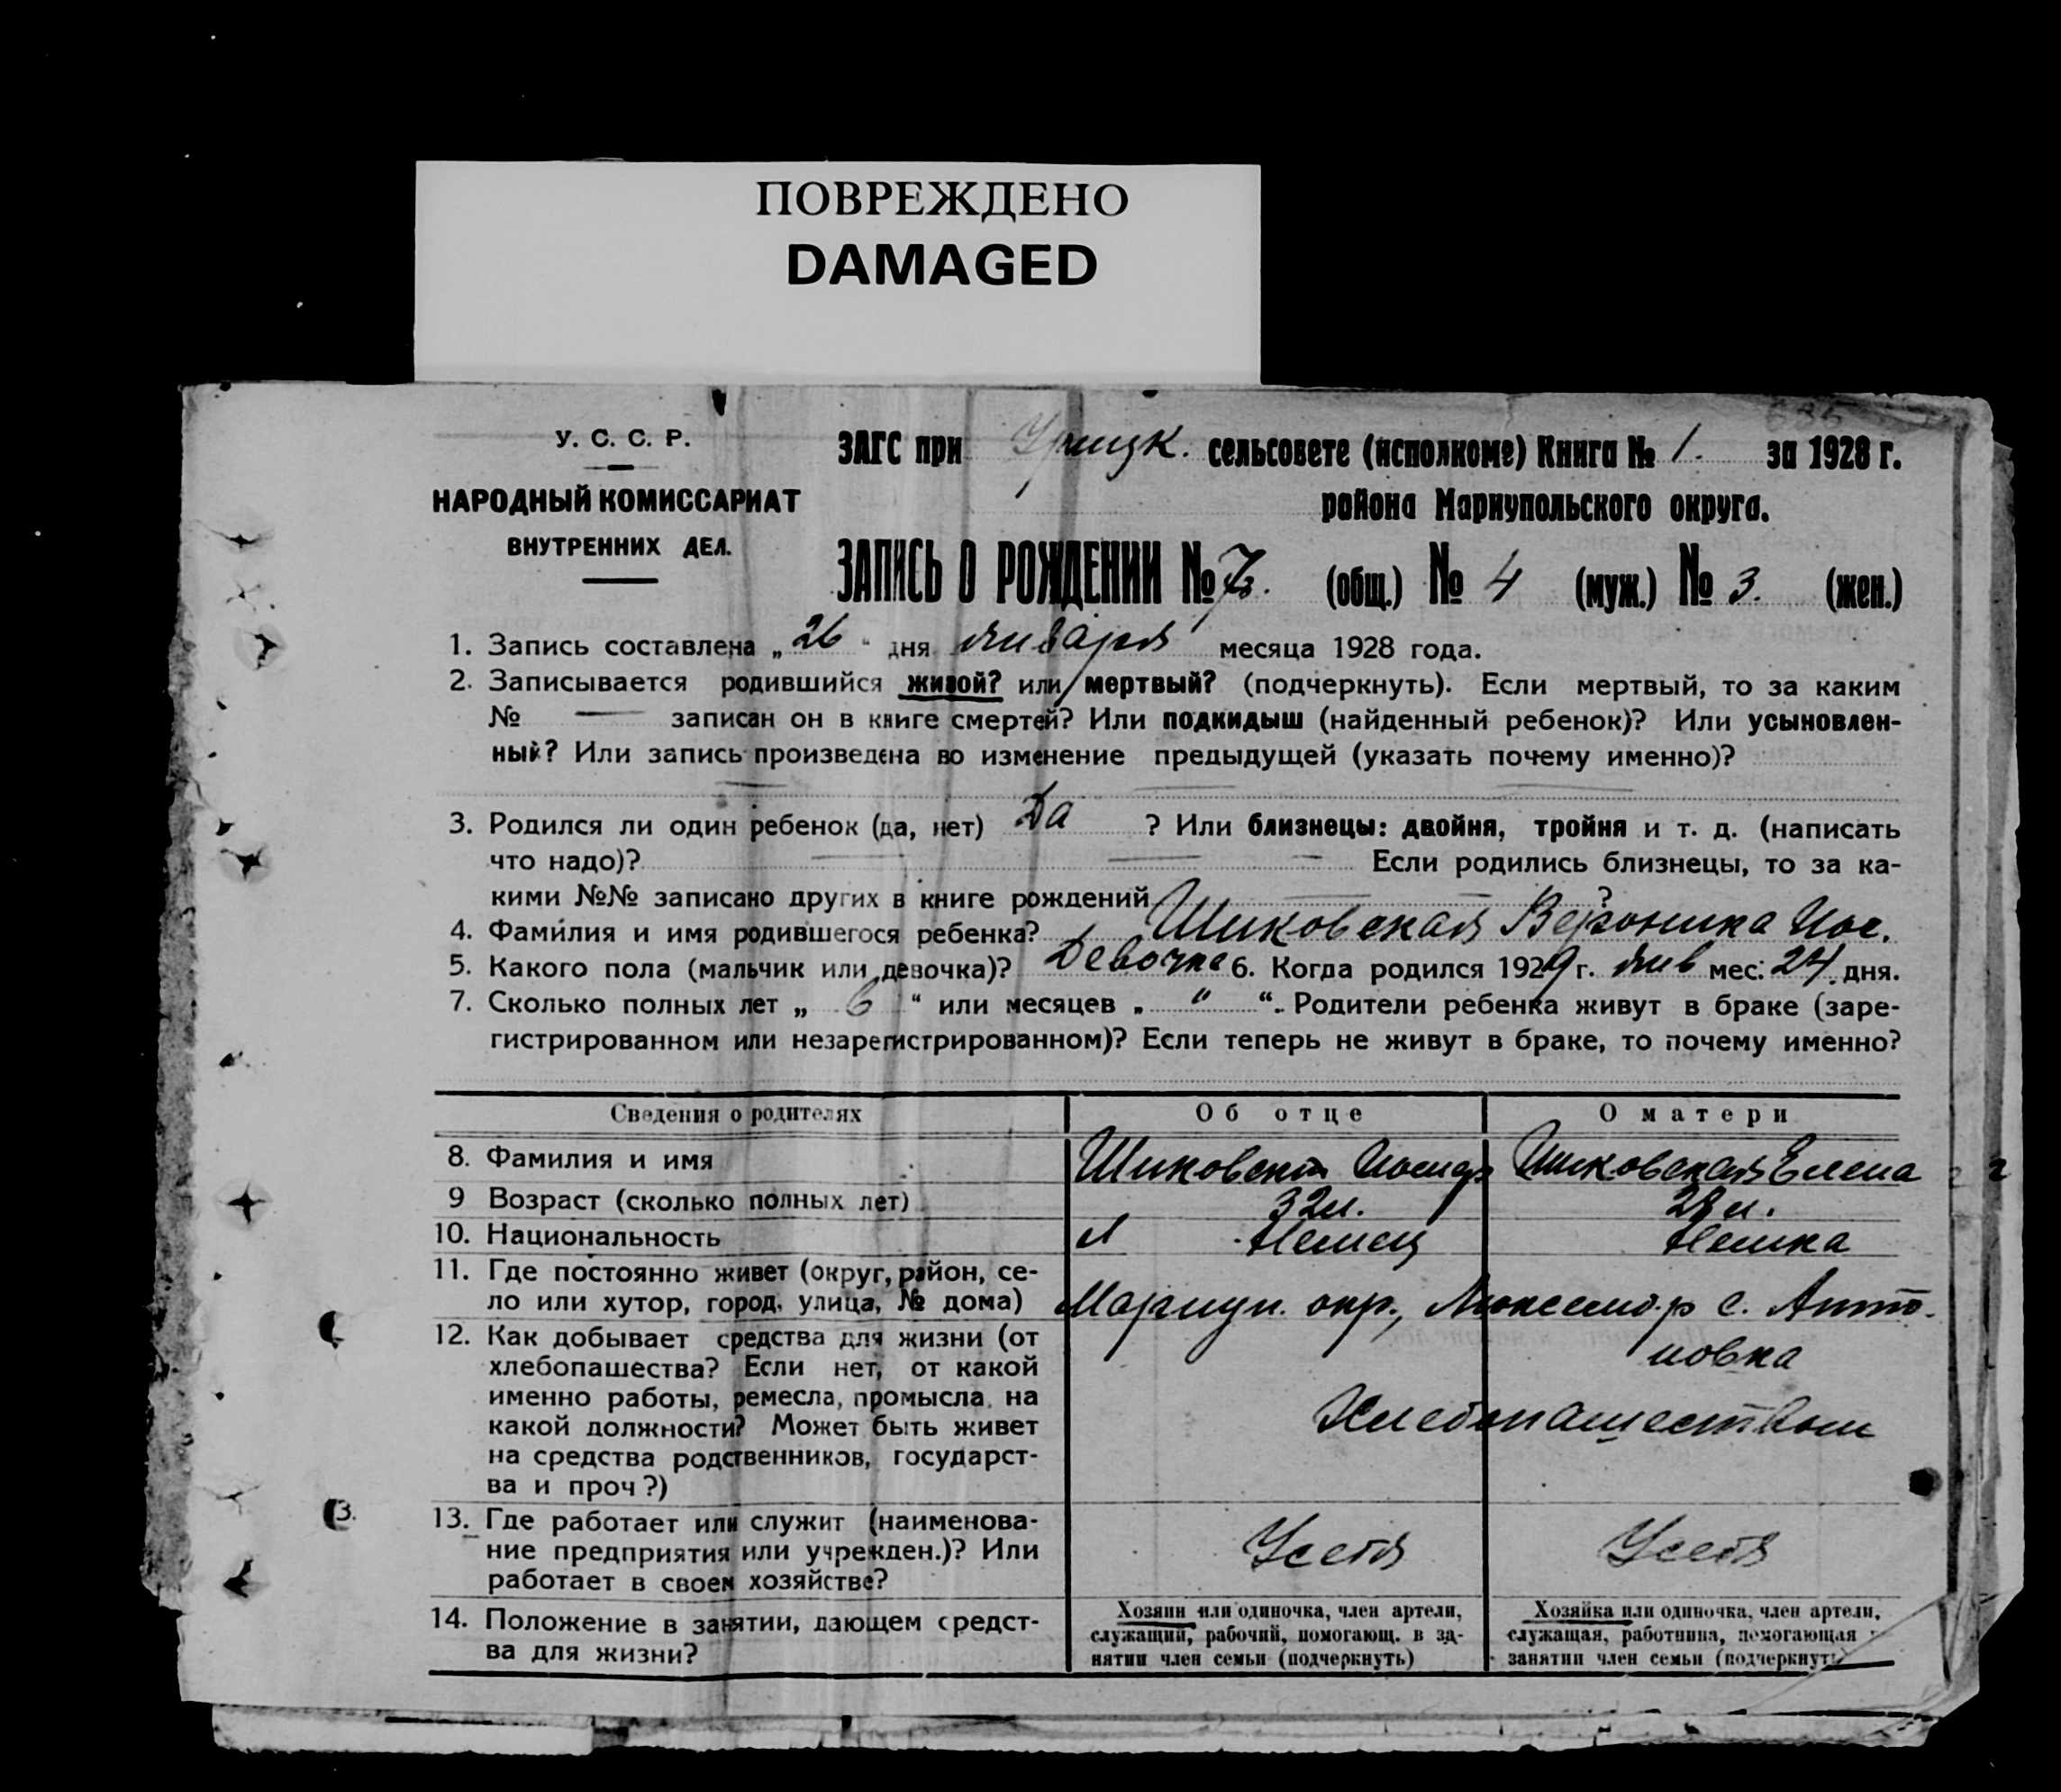 ПОВРЕЖДЕНО
DAMAGED
У. С. С. Р.
НАРОДНЫЙ КОМИССАРИАТ
ВНУТРЕННИХ ДЕЛ.
ЗАГС при Урицк. сельсовете (исполкоме) Книга № 1. за 1928 г.
района Мариупольского округа.
ЗАПИСЬ О РОЖДЕНИИ № 7. (общ.) № 4 (муж.) № 3. (жен.)
1. Запись составлена „26" дня января месяца 1928 года.
2. Записывается родившийся живой? или мертвый? (подчеркнуть). Если мертвый, то за каким
№ — записан он в книге смертей? Или подкидыш (найденный ребенок)? Или усыновлен-
ный? Или запись произведена во изменение предыдущей (указать почему именно)?
3. Родился ли один ребенок (да, нет) Да ? Или близнецы: двойня, тройня и т. д. (написать
что надо)? — — — Если родились близнецы, то за ка-
кими №№ записано других в книге рождений ?
4. Фамилия и имя родившегося ребенка? Шиковская Вероника Иос.
5. Какого пола (мальчик или девочка)? Девочка 6. Когда родился 1929 г. янв мес. 24 дня.
7. Сколько полных лет „ 6 " или месяцев „ " “. Родители ребенка живут в браке (заре-
гистрированном или незарегистрированном)? Если теперь не живут в браке, то почему именно?
Сведения о родителях Об отце О матери
8. Фамилия и имя Шиковский Иосиф Шиковская Елена
9 Возраст (сколько полных лет) 32 л. 28 л.
10. Национальность Немец Немка
11. Где постоянно живет (округ, район, се-
ло или хутор, город, улица, № дома) Мариуп. окр., Люксемб. р с. Анто-
новка
12. Как добывает средства для жизни (от
хлебопашества? Если нет, от какой
именно работы, ремесла, промысла, на
какой должности? Может быть живет
на средства родственников, государст-
ва и проч ?)
Хлебопашеством
13. Где работает или служит (наименова-
ние предприятия или учрежден.)? Или
работает в своем хозяйстве?
У себя У себя
14. Положение в занятии, дающем средст-
ва для жизни?
Хозяин или одиночка, член артели,
служащий, рабочий, помогающ. в за-
нятии член семьи (подчеркнуть)
Хозяйка или одиночка, член артели,
служащая, работница, помогающая
занятии член семьи (подчеркнуть)
3.